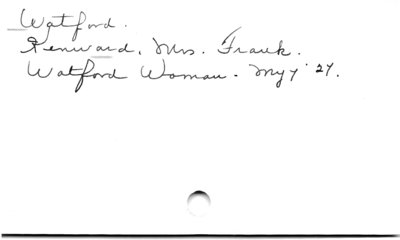 Watford.
Renward, Mrs. Frank.
Watford Woman. My 7 '27.